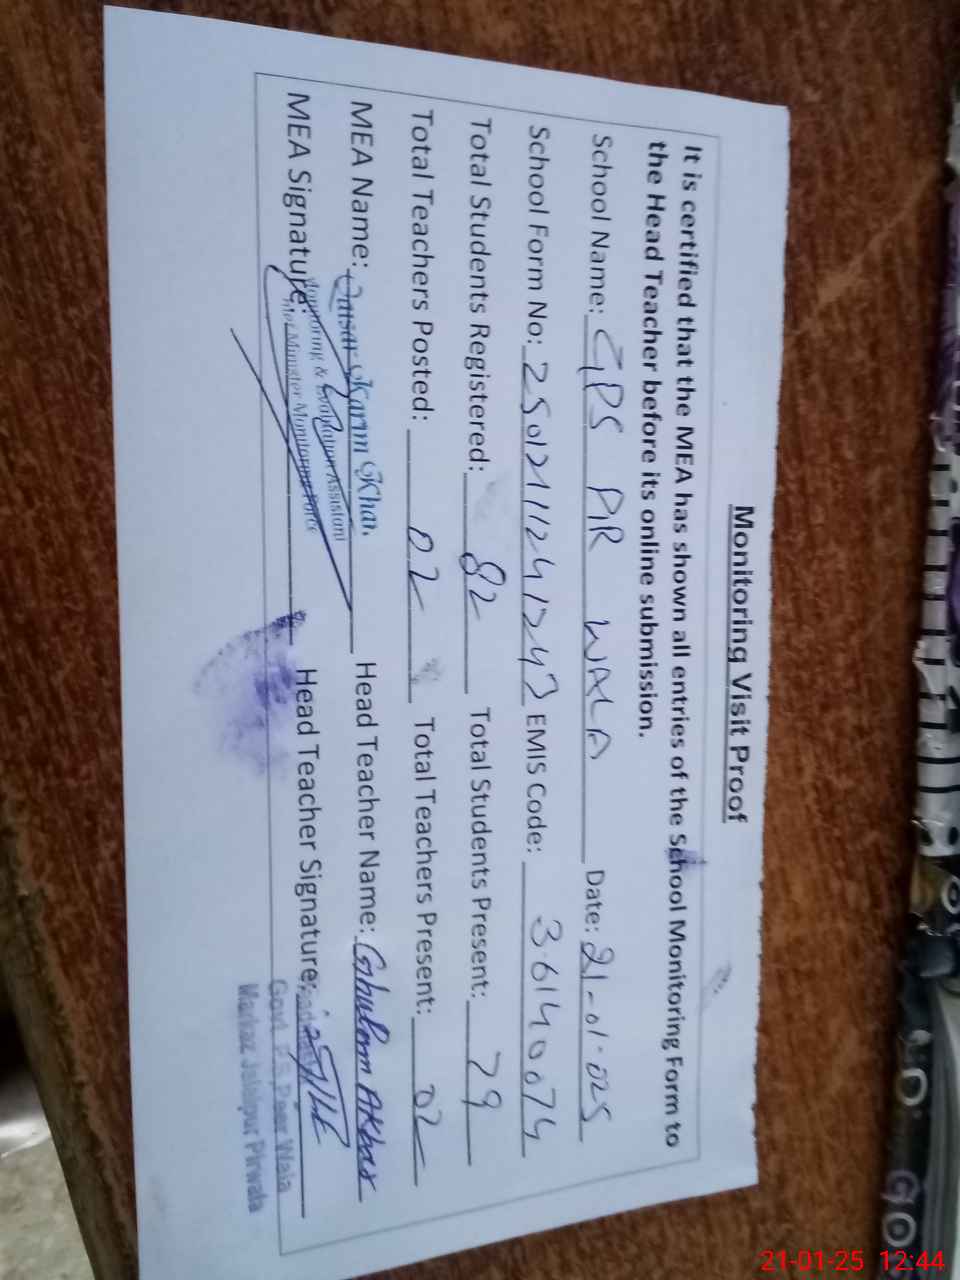 Monitoring Visit Proof
It is certified that the MEA has shown all entries of the School Monitoring Form to
the Head Teacher before its online submission.
School Name: GPS PIR WALA Date: 21-01-025
School Form No: EMIS Code: 36140074
Total Students Registered: 82 Total Students Present: 79
Total Teachers Posted: 02 Total Teachers Present: 02
MEA Name: Qaisar Karim Khan Head Teacher Name: Ghulam Akbar
Monitoring & Evaluation Assistant
MEA Signature: Head Teacher Signature:
Chief Minister Monitoring Force
Govt. P.S Peer Wala
Markaz Jalalpur Pirwala
21-01-25 12:44